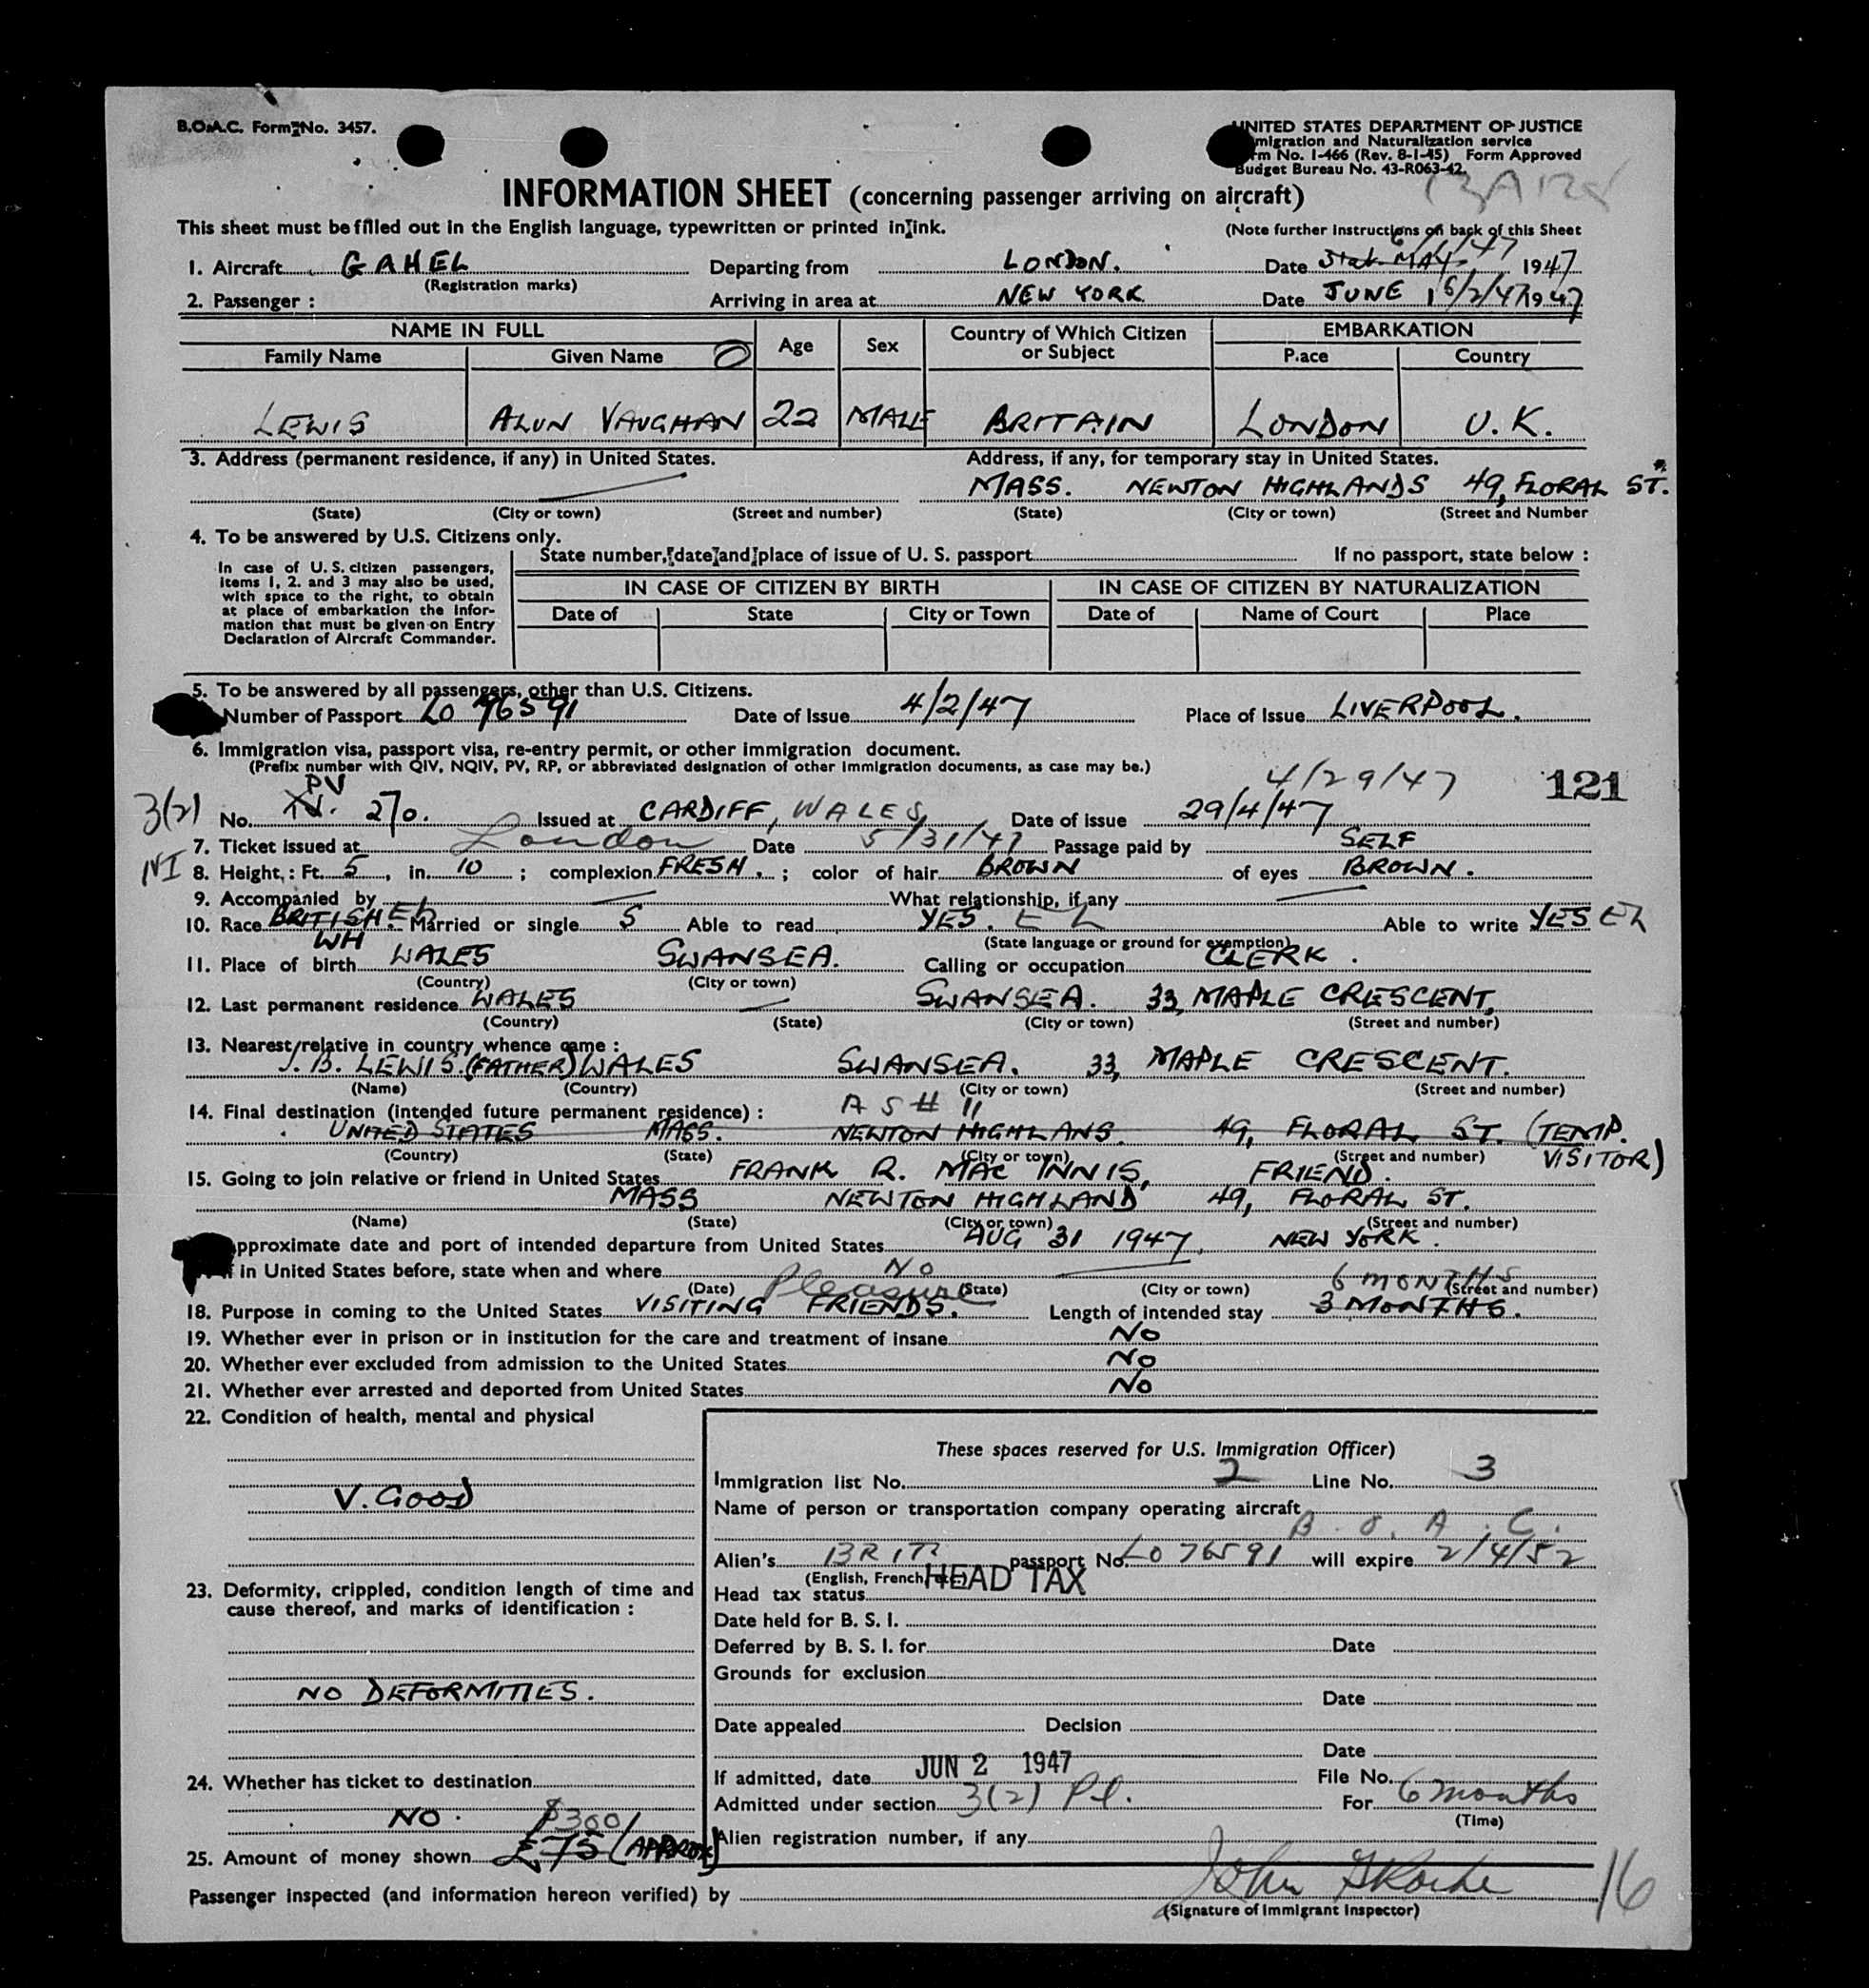 B.O.A.C. Form No. 3457.
UNITED STATES DEPARTMENT OF JUSTICE
migration and Naturalization service
rm No. I-466 (Rev. 8-1-45) Form Approved
Budget Bureau No. 43-R063-42.
INFORMATION SHEET (concerning passenger arriving on aircraft)
This sheet must be filled out in the English language, typewritten or printed in ink.
(Note further Instructions on back of this Sheet
1. Aircraft GAHEL Departing from LONDON. Date 31st MAY 1947
(Registration marks)
2. Passenger : Arriving in area at NEW YORK Date JUNE 1 6/2/47 1947
NAME IN FULL Age Sex Country of Which Citizen or Subject EMBARKATION
Family Name Given Name Place Country
LEWIS ALUN VAUGHAN 22 MALE BRITAIN LONDON U.K.
3. Address (permanent residence, if any) in United States. Address, if any, for temporary stay in United States.
MASS. NEWTON HIGHLANDS 49, FLORAL ST.
(State) (City or town) (Street and number) (State) (City or town) (Street and Number
4. To be answered by U.S. Citizens only.
State number, date and place of issue of U. S. passport If no passport, state below :
In case of U.S. citizen passengers,
items 1, 2. and 3 may also be used,
with space to the right, to obtain
at place of embarkation the infor-
mation that must be given on Entry
Declaration of Aircraft Commander.
IN CASE OF CITIZEN BY BIRTH IN CASE OF CITIZEN BY NATURALIZATION
Date of State City or Town Date of Name of Court Place
5. To be answered by all passengers, other than U.S. Citizens.
Number of Passport LO 76591 Date of Issue 4/2/47 Place of Issue LIVERPOOL.
6. Immigration visa, passport visa, re-entry permit, or other immigration document.
(Prefix number with QIV, NQIV, PV, RP, or abbreviated designation of other immigration documents, as case may be.)
PV 4/29/47 121
3(2) No. 270. Issued at CARDIFF, WALES, Date of issue 29/4/47
7. Ticket issued at London Date 5/31/47 Passage paid by SELF
NI 8. Height,: Ft. 5, in. 10 ; complexion FRESH. ; color of hair BROWN of eyes BROWN.
9. Accompanied by What relationship, if any
10. Race BRITISH. Married or single S Able to read YES. Able to write YES
WH (State language or ground for exemption)
11. Place of birth WALES SWANSEA. Calling or occupation CLERK.
(Country) (City or town)
12. Last permanent residence WALES SWANSEA. 33, MAPLE CRESCENT,
(Country) (State) (City or town) (Street and number)
13. Nearest relative in country whence came :
J. B. LEWIS. (FATHER) WALES SWANSEA. 33, MAPLE CRESCENT.
(Name) (Country) (City or town) (Street and number)
14. Final destination (intended future permanent residence) : AS # 11
UNITED STATES MASS. NEWTON HIGHLANS. 49, FLORAL ST. (TEMP. VISITOR)
(Country) (State) (City or town) (Street and number)
15. Going to join relative or friend in United States FRANK R. MAC INNIS, FRIEND.
MASS NEWTON HIGHLAND 49, FLORAL ST.
(Name) (State) (City or town) (Street and number)
pproximate date and port of intended departure from United States AUG 31 1947, NEW YORK.
in United States before, state when and where NO
(Date) (State) (City or town) (Street and number)
Pleasure 6 MONTHS
18. Purpose in coming to the United States VISITING FRIENDS. Length of intended stay 3 MONTHS.
19. Whether ever in prison or in institution for the care and treatment of insane NO
20. Whether ever excluded from admission to the United States NO
21. Whether ever arrested and deported from United States NO
22. Condition of health, mental and physical
V. GOOD
23. Deformity, crippled, condition length of time and
cause thereof, and marks of identification :
NO DEFORMITIES.
24. Whether has ticket to destination
NO.
$300
25. Amount of money shown £75 (APPROX)
These spaces reserved for U.S. Immigration Officer)
Immigration list No. 2 Line No. 3
Name of person or transportation company operating aircraft
B.O.A.C.
Alien's BRIT passport No. LO 76591 will expire 2/4/52
(English, French, etc.)
Head tax status HEAD TAX
Date held for B. S. I.
Deferred by B. S. I. for Date
Grounds for exclusion
Date
Date appealed Decision
Date
If admitted, date JUN 2 1947 File No.
Admitted under section 3(2) Pl. For 6 months
(Time)
Alien registration number, if any
Passenger inspected (and information hereon verified) by John
(Signature of Immigrant Inspector)
16